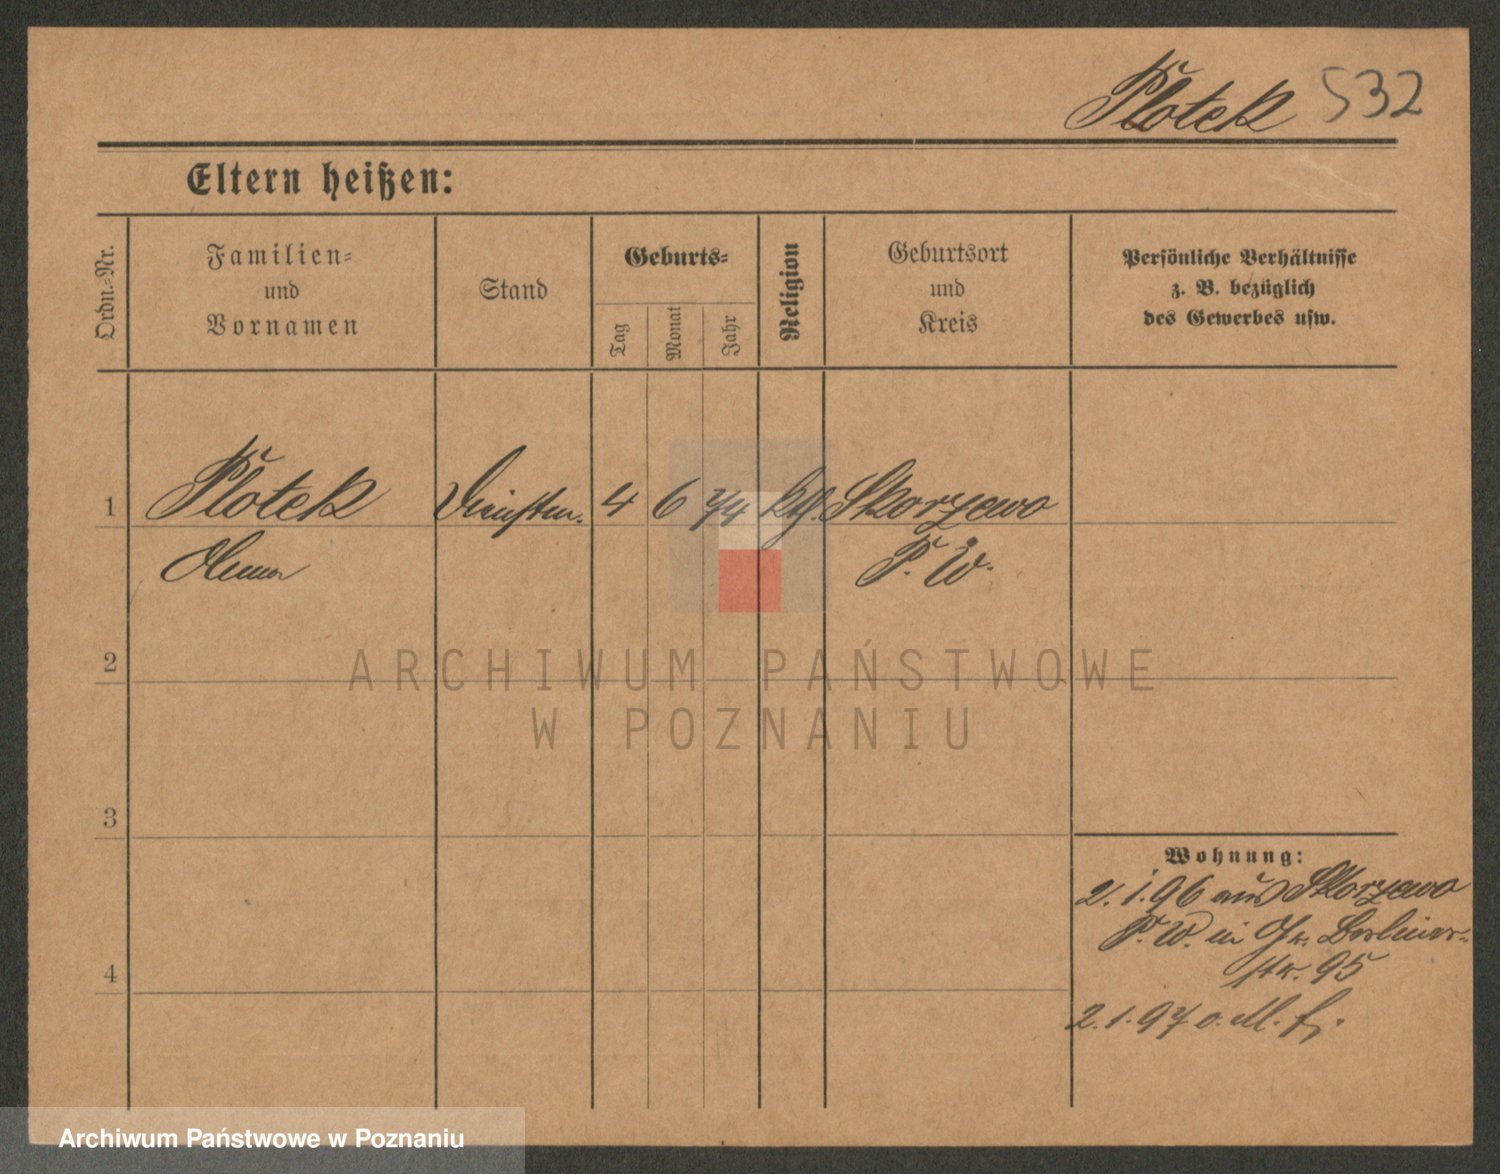 Plotek 532
Eltern heißen:
Ordn.-Nr.
Familien-
und
Vornamen
Stand
Geburts-
Tag
Monat
Jahr
Religion
Geburtsort
und
Kreis
Persönliche Verhältnisse
z. B. bezüglich
des Gewerbes usw.
1 Plotek 4 6 74 kth. Skorzewo
P. W.
2
3
4
Wohnung:
2.1.96 aus Skorzewo
P. W. in Gr. Berliner-
str. 95
2.1.97 o. M. f.
ARCHIWUM PAŃSTWOWE
W POZNANIU
Archiwum Państwowe w Poznaniu